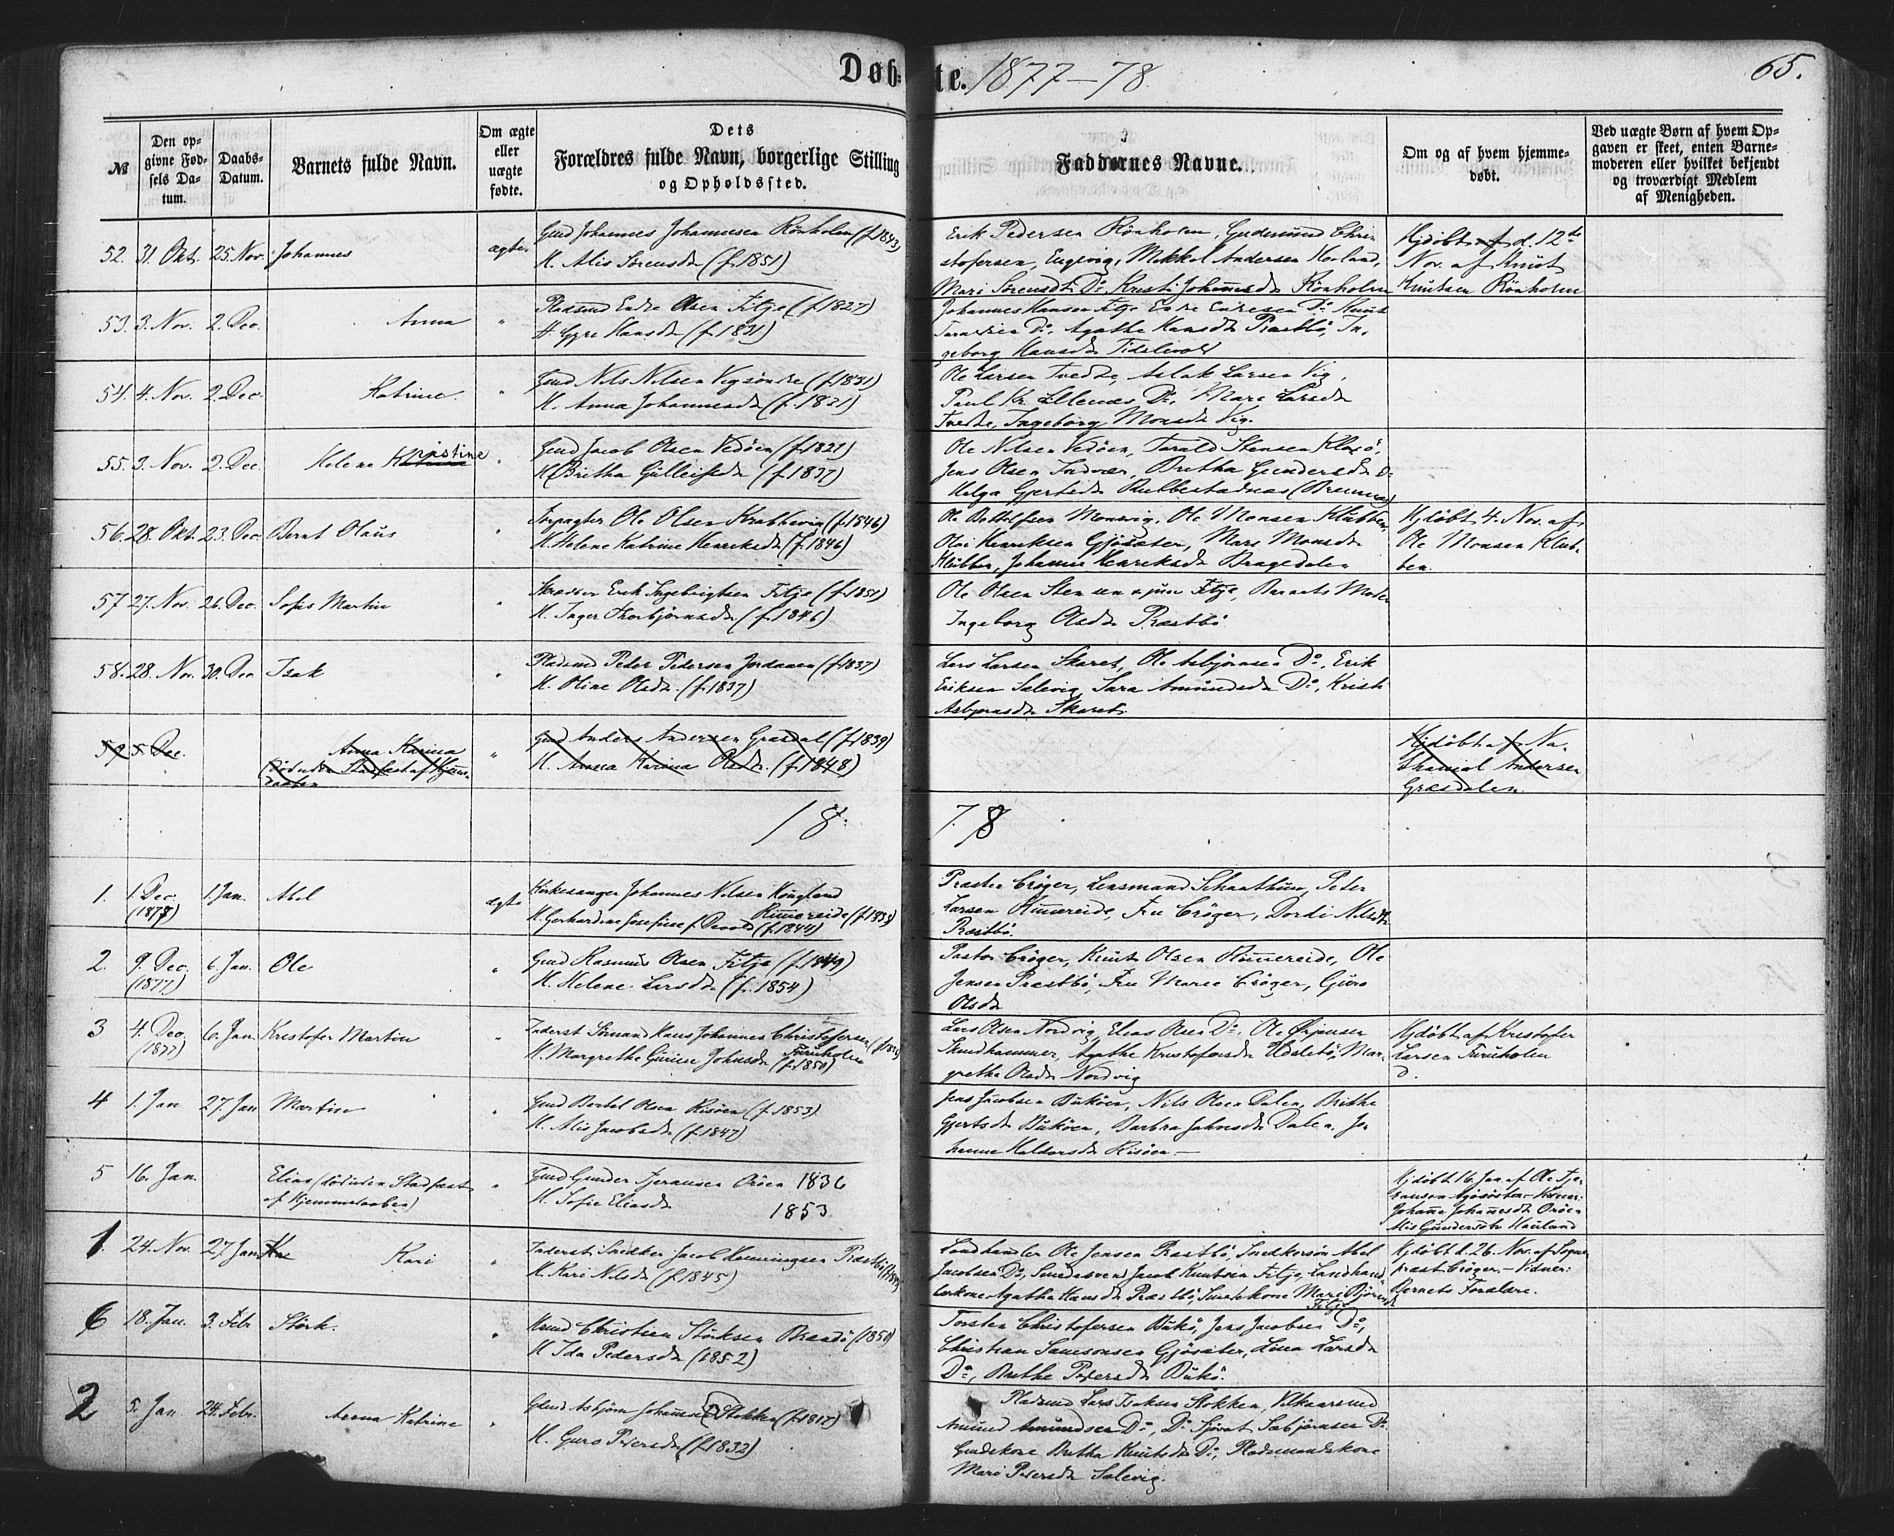 Døbte. 1877–78.
65.
№
Den opgivne Fødsels Datum.
Daabs-Datum.
Barnets fulde Navn.
Om ægte eller uægte fødte.
Dets Forældres fulde Navn, borgerlige Stilling og Opholdssted.
Faddernes Navne.
Om og af hvem hjemmedøbt.
Ved uægte Børn af hvem Opgaven er skeet, enten Barnemoderen eller hvilket bekjendt og troværdigt Medlem af Menigheden.
52. 31. Okt. 25. Nov. Johannes ægte
Gmd Johannes Johannesen Rönholm (f. 1843)
H. Alis Sörensdr (f. 1851)
Erik Pedersen Rönholm, Gudmund Chri
stofersen, Engevig, Mikkel Andersen
Mari Sörensdr Do, Kristi Johannesdr Rönholm
Hjdöbt d. 12te
Nov. af Knut
Knutsen Rönholm
53. 3. Nov. 2. Dec. Anna "
Pladsmd Endre Olsen Fitje (f. 1827)
H. Gyri Hansdr (f. 1831)
Johannes Hansen Fitje Endre Endresen Do Knut
Do, Agathe Hansdr Præstbö, In
geborg Hansdr
54. 4. Nov. 2. Dec. Katrine "
Gmd Nils Nilsen Vigsöndre (f. 1831)
H. Anna Johannesdr (f. 1831)
Ole Larsen Tvedte, Aslak Larsen Vig,
Paul Kr. Ellendsen Do, Mari Larsdr
Tvedte, Ingeborg Monsdr Vig.
55. 3. Nov. 2. Dec. Helene Kristine "
Gmd Jacob Olsen Vedöen (f. 1821)
H. Britha (f. 1837)
Ole Nilsen Vedöen, Tarald Stensen
Jens Olsen Indvær, Britha Gundersdr Do
Helga Gjertsdr Rubbestadnæs (Bremnes)
56. 28. Okt. 23. Dec. Bernt Olaus "
Ole Olsen Krabbevig (f. 1846)
H. Helene Katrine Henriksdr (f. 1846)
Ole Monsen Klubben,
Olai Henriksen Gjösæter, Mari Monsdr
Klubben, Johanne Henriksdr Bragedalen
Hjdöbt 4. Nov. af
Ole Monsen Klub-
ben.
57 27. Nov. 26. Dec. Sofus Martin "
Skrædder Erik Ingebrigtsen Fitje (f. 1851)
H. Inger Thorbjörnsdr (f. 1846)
Ole Olsen Sten sen & jun Fitje, Barnets Moder
Ingeborg Olsdr Præstbö
58. 28. Nov. 30. Dec Isak "
Pladsmd Peder Pedersen Jordaaen (f. 1837)
H. Oline Olsdr. (f. 1837)
Lars Larsen Skaret, Ole Asbjörnsen Do, Erik
Eriksen Salevig, Sara Amundsdr Do, Kristi
Asbjörnsdr Skaret.
59. 5. Dec. Anna Karina
(Död uden Stadfæst. af Hjemme-
daaben "
Gmd Anders Andersen Græsdal (f. 1839)
H. Anna Karina Olsdr. (f. 1848)
Hjdöbt af Na-
thanael Andersen
Græsdalen
1878
1. 1. Dec. (1877) 1. Jan. Abel ægte
Kirkesanger Johannes Nilsen Kongland
Rimmereide (f. 1838)
H. Gerhardine Josefine f. Devold (f. 1844)
Præsten Cröger, Lensmand Schanthun, Peter
Larsen Rimereide, Fru Cröger, Dordi Nilsdr
Præstbö.
2. 9. Dec. (1877) 6. Jan. Ole "
Gmd Rasmus Olsen Fitje (f. 1849)
H. Helene Larsdr (f. 1854)
Pastor Cröger, Knut Olsen Rimmereide, Ole
Jensen Præstbö, Fru Marie Cröger, Guro
Olsdr
3 4. Dec. (1877) 6. Jan Kristofer Martin "
Inderst Sömand Hans Johannes Christofersen
Furuholmen
H. Margrethe Johnsdr (f. 1850)
Lars Olsen Nordvig, Elias Olsen Do, Ole Örjansen
Skimdhammer, Agathe Kristofersdr Mar-
grethe Olsdr Nordvig
Hjdöbt af Kristofer
Larsen Furuholmen
4 1. Jan 27. Jan Martin "
Gmd Bertel Olsen Risöen (f. 1853)
H. Alis Jacobsdr (f. 1847)
Jens Jacobsen Buköen, Nils Olsen Dalen, Brithe
Gjertsdr Buköen, Barbra Johnsdr Dalen, Jo
hanne Haldorsdr Risöen.—
5 16. Jan. Elias (död uden Stadfæst
af Hjemmedaaben) "
Gmd Gunder Tjeransen Oröen 1836
H. Sofie Eliasdr 1853
Hjdöbt 16. Jan af Ole Tje-
ransen Vidner:
Johanne Johannesdr Oröen
Alis Gundersdr
1. 24. Nov. 27. Jan Kari "
Inderst Snedker Jacob Henningsen Præstbö
H. Kari Nilsdr (f. 1845)
Landhandler Ole Jensen Præstbö, Snedkersön Abel
Jacobsen Do, Jacob Knutsen Fitje, Landhand
lerkone Agatha Hansdr Præstbö, Smedekone Mari
Fitje
Hjdöbt d. 26. Nov. af Sogne
præst Cröger. – Vidner:
Barnets Forældre.
6 18. Jan. 3. Febr Störk. "
Christian Störksen Brandö (1850)
H. Ida Pedersdr (1852)
Torsten Christofersen Bukö, Jens Jacobsen Do,
Christian Samsonsen Gjösæter, Lina Larsdr
Do, Brithe Pedersdr Bukö.
2 5. Jan. 24. Febr. Anna Katrine "
Gmd Asbjörn Johannesen Stokken (f. 1817)
H. Guro Pedersdr (f. 1833)
Pladsmd Lars Isaksen Stokken,
Amund Amundsen Do, Do Sjovat Asbjörnsen Do.
Gmdskone Britha Knutsdr Do, Pladsmandskone
Mari Pedersdr Salevig.